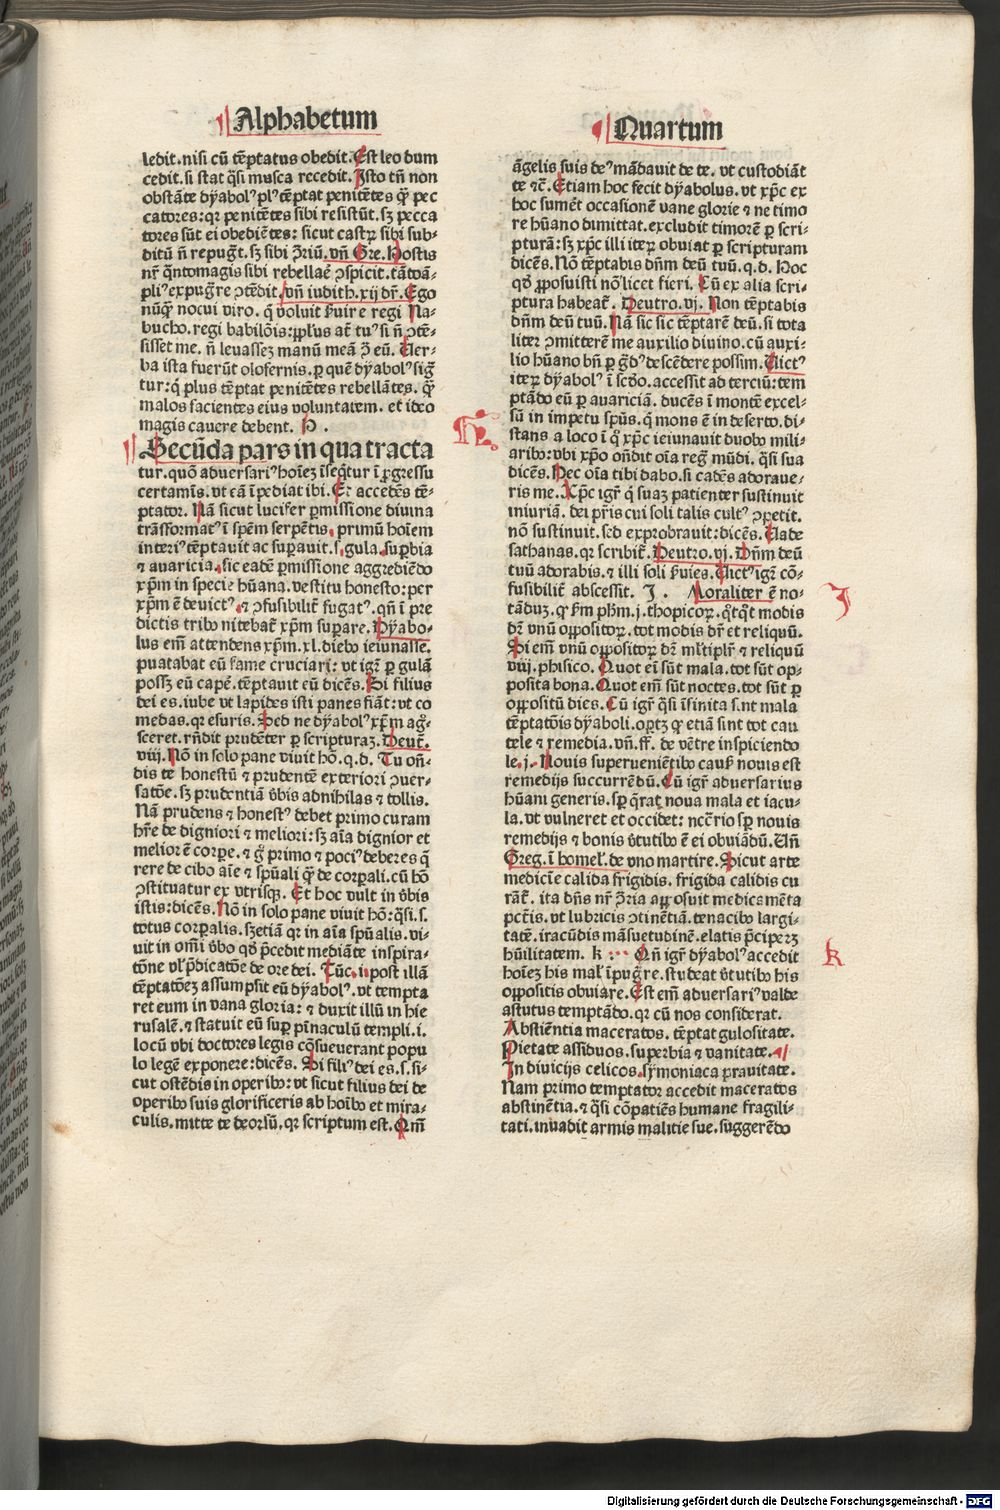 Alphabetum
ledit.nisi cū tēptatus obedit.Est leo dum
cedit.si stat q̄si musca recedit.Isto tn̄ non
obstāte dyabolꝰ plꝰ tēptat penitētes q̄ꝫ pec
catores:qꝛ penitētes sibi resistūt.sꝫ pecca
tores sūt ei obediētes: sicut castꝝ sibi sub-
ditū ñ repugt.sꝫ sibi ꝯriū.vñ Gre.Hostis
nr̄ q̄ntomagis sibi rebellaē ꝯspicit.tātoā-
pliꝰ expugre ꝯtēdit.vñ iudith.xij dr̄.Ego
nūq̄ꝫ nocui viro. q̇ voluit ẜuire regi Na-
bucho.regi babilōis:ꝓplus at̄ tuꝰ si ñ ꝯtē-
sisset me. ñ leuasseꝫ manū meā ꝯ eū. Uer-
ba ista fuerūt olofernis. ꝑ quē dyabolꝰ sig
tur:q̇ plus tēptat penitētes rebellātes. q̄ꝫ
malos facientes eius voluntatem. et ideo
magis cauere debent. H .
Secūda pars in qua tracta
tur.quō aduersariꝰ hoīeꝫ īseq̇tur ī ꝓgressu
certamīs.vt eā īpediat ibi. Et accedēs tē-
ptator. Nā sicut lucifer ꝑmissione diuina
trāsformatꝰ ī spēm serpētis. primū hoīem
interiꝰ tēptauit ac suꝑauit.s.gula.suꝑbia
⁊ auaricia.sic eadē ꝑmissione aggrediēdo
xp̄m in specie hūana.vestitu honesto:per
xp̄m ē deuictꝰ.⁊ ꝯfusibilit̄ fugatꝰ. qn̄ ī pre
dictis tribꝰ nitebat̄ xp̄m suꝑare. Dyabo-
lus em̄ attendens xp̄m.xl.diebꝰ ieiunasse.
putabat eū fame cruciari: vt igr̄ ꝑ gulā
possꝫ eū capē.tēptauit eū dicēs.Si filius
dei es.iube vt lapides isti panes fiāt:vt co
medas.qꝛ esuris.Sed ne dyabolꝰ xp̄m ag-
sceret.rn̄dit prudēter ꝑ scripturaꝫ.Deut̄.
viij.Nō in solo pane viuit hō.q.d. Tu oñ-
dis te honestū ⁊ prudentē exteriori ꝯuer-
satōe.sꝫ prudentiā v̄bis adnihilas ⁊ tollis.
Nā prudens ⁊ honestꝰ debet primo curam
hr̄e de digniori ⁊ meliori:sꝫ aīa dignior et
melior ē corꝑe.⁊ g̊ primo ⁊ pociꝰ deberes q̄
rere de cibo aīe ⁊ spūali q̄ꝫ de corꝑali.cū hō
ꝯstituatur ex vtrisqꝫ. Et hoc vult in v̄bis
istis:dicēs.Nō in solo pane viuit hō:q̄si.s.
totus corꝑalis.sꝫetiā qꝛ in aīa spūalis.vi-
uit in omī v̄bo qd̓ ꝓcedit mediāte inspira-
tōne vl̓ p̄dicatōe de ore dei. Tūc.i.post illā
tēptatōeꝫ assumpsit eū dyabolꝰ.vt tempta
ret eum in vana gloria: ⁊ duxit illū in hie
rusalē.⁊ statuit eū suꝑ pīnaculū templi.i.
locū vbi doctores legis cōsueuerant popu
lo legē exponere:dicēs. Si filiꝰ dei es.s.si-
cut ostēdis in operibꝰ:vt sicut filius dei de
operibꝰ suis glorificeris ab hoībꝰ et mira-
culis.mitte te deorsū.qꝛ scriptum est.Qm̄
Quartum
āgelis suis deꝰ mādauit de te. vt custodiāt
te ⁊c̄. Etiam hoc fecit dyabolus.vt xp̄c ex
hoc sumēt occasionē vane glorie ⁊ ne timo
re hūano dimittat.excludit timorē ꝑ scri-
pturā:sꝫ xp̄c illi iteꝝ obuiat ꝑ scripturam
dicēs. Nō tēptabis dn̄m deū tuū.q.d. Hoc
qd̓ ꝓposuisti nō licet fieri. Cū ex alia scri-
ptura habeat̄. Deutro.vj. Non tēptabis
dn̄m deū tuū.Nā sic sic tēptarē deū.si tota
liteꝛ ꝯmitterē me auxilio diuino.cū auxi-
lio hūano bn̄ ꝑ g̊dꝰ descēdere possim.Uictꝰ
iteꝝ dyabolꝰ ī scd̓o.accessit ad terciū:tem
ptādo eū ꝑ auariciā. ducēs ī montē excel-
sū in impetu spūs.q̇ mons ē in deserto.di-
stans a loco ī q̊ xp̄c ieiunauit duobꝰ mili-
aribꝰ:vbi xp̄o on̄dit oīa regͣ mūdi. q̄si sua
dicēs.Hec oīa tibi dabo.si cadēs adoraue-
ris me. Xp̄c igr̄ q̇ suaꝫ patienter sustinuit
iniuriā. dei pr̄is cui soli talis cultꝰ ꝯpetit.
nō sustinuit.sed exprobrauit:dicēs.Uade
sathanas.qꝛ scribit̄.Deutro.vj.Dn̄m deū
tuū adorabis.⁊ illi soli ẜuies.Uictꝰ igr̄ cō-
fusibilit̄ abscessit. I . Moraliter ē no-
tāduꝫ.qꝫ ẜm pħm.j.thopicoꝝ.q̇tq̇t modis
dr̄ vnū oppositoꝝ.tot modis dr̄ et reliquū.
Si em̄ vnū oppositoꝝ dr̄ ml̓tiplr̄ ⁊ reliquū
viij.phisico. Quot ei sūt mala.tot sūt op-
posita bona. Quot em̄ sūt noctes.tot sūt ꝑ
oppositū dies.Cū igr̄ q̄si īfinita sūt mala
tēptatōis dyaboli.oꝑtꝫ qꝫ etiā sint tot cau
tele ⁊ remedia.vñ.ff. de vētre inspiciendo
le.j. Nouis superuenientibꝰ causꝭ nouis est
remedijs succurrēdū.Cū igr̄ aduersarius
hūani generis.sꝑ q̄rat noua mala et iacu-
la.vt vulneret et occidet: nc̄c̄rio sꝑ nouis
remedijs ⁊ bonis v̄tutibꝰ ē ei obuiādū.Uñ
Greg.ī homel̓.de vno martire.Sicut arte
medicīe calida frigidis. frigida calidis cu
rāt̄. ita dn̄s nr̄ ꝯria apposuit medicamēta
pctīs.vt lubricis ꝯtinētiā.tenacibꝰ largi-
tatē.iracūdis māsuetudinē.elatis p̄ciperꝫ
hūilitatem. k Qñ igr̄ dyabolꝰ accedit
hoīeꝫ his malꝭ īpugre.studeat v̄tutibꝰ his
oppositis obuiare.Est em̄ aduersariꝰ valde
astutus temptādo.qꝛ cū nos considerat.
Abstiēntia maceratos. tēptat gulositate.
Pietate assiduos.superbia ⁊ vanitate.
In diuicijs celicos.symoniaca prauitate.
Nam primo temptator accedit maceratos
abstinētia.⁊ q̄si cōpatiēs humane fragili-
tati.inuadit armis malitie sue.suggerēdo
H
I
k
Digitalisierung gefördert durch die Deutsche Forschungsgemeinschaft - DFG